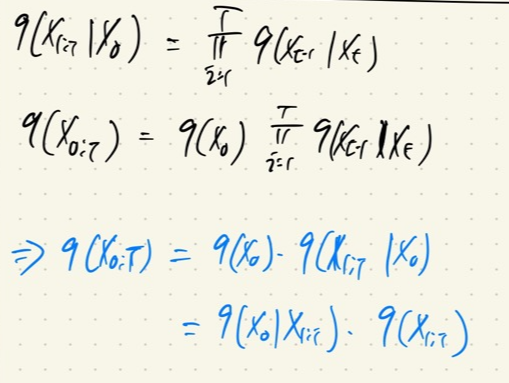 q(x₁:T | x₀) = ∏ᵢ₌₁ᵀ q(xₜ₋₁ | xₜ)
q(x₀:T) = q(x₀) ∏ᵢ₌₁ᵀ q(xₜ₋₁ | xₜ)
⇒ q(x₀:T) = q(x₀) · q(x₁:T | x₀)
= q(x₀ | x₁:T) · q(x₁:T)